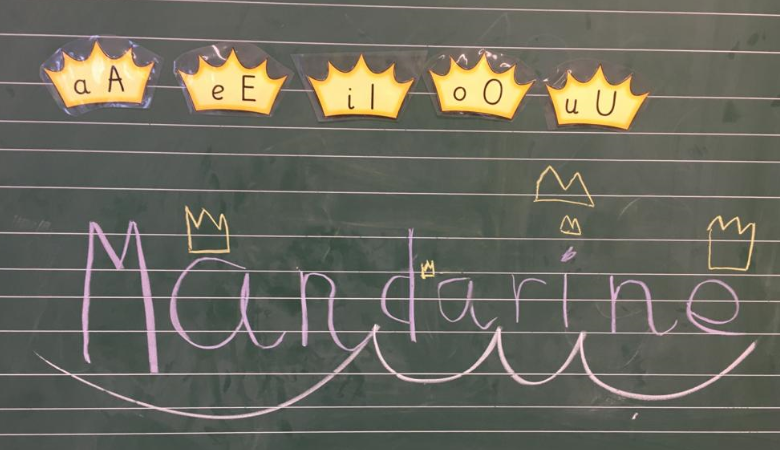 a A e E i I o O u U
Mandarine